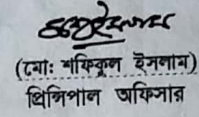 (মোঃ শফিকুল ইসলাম)
প্রিন্সিপাল অফিসার